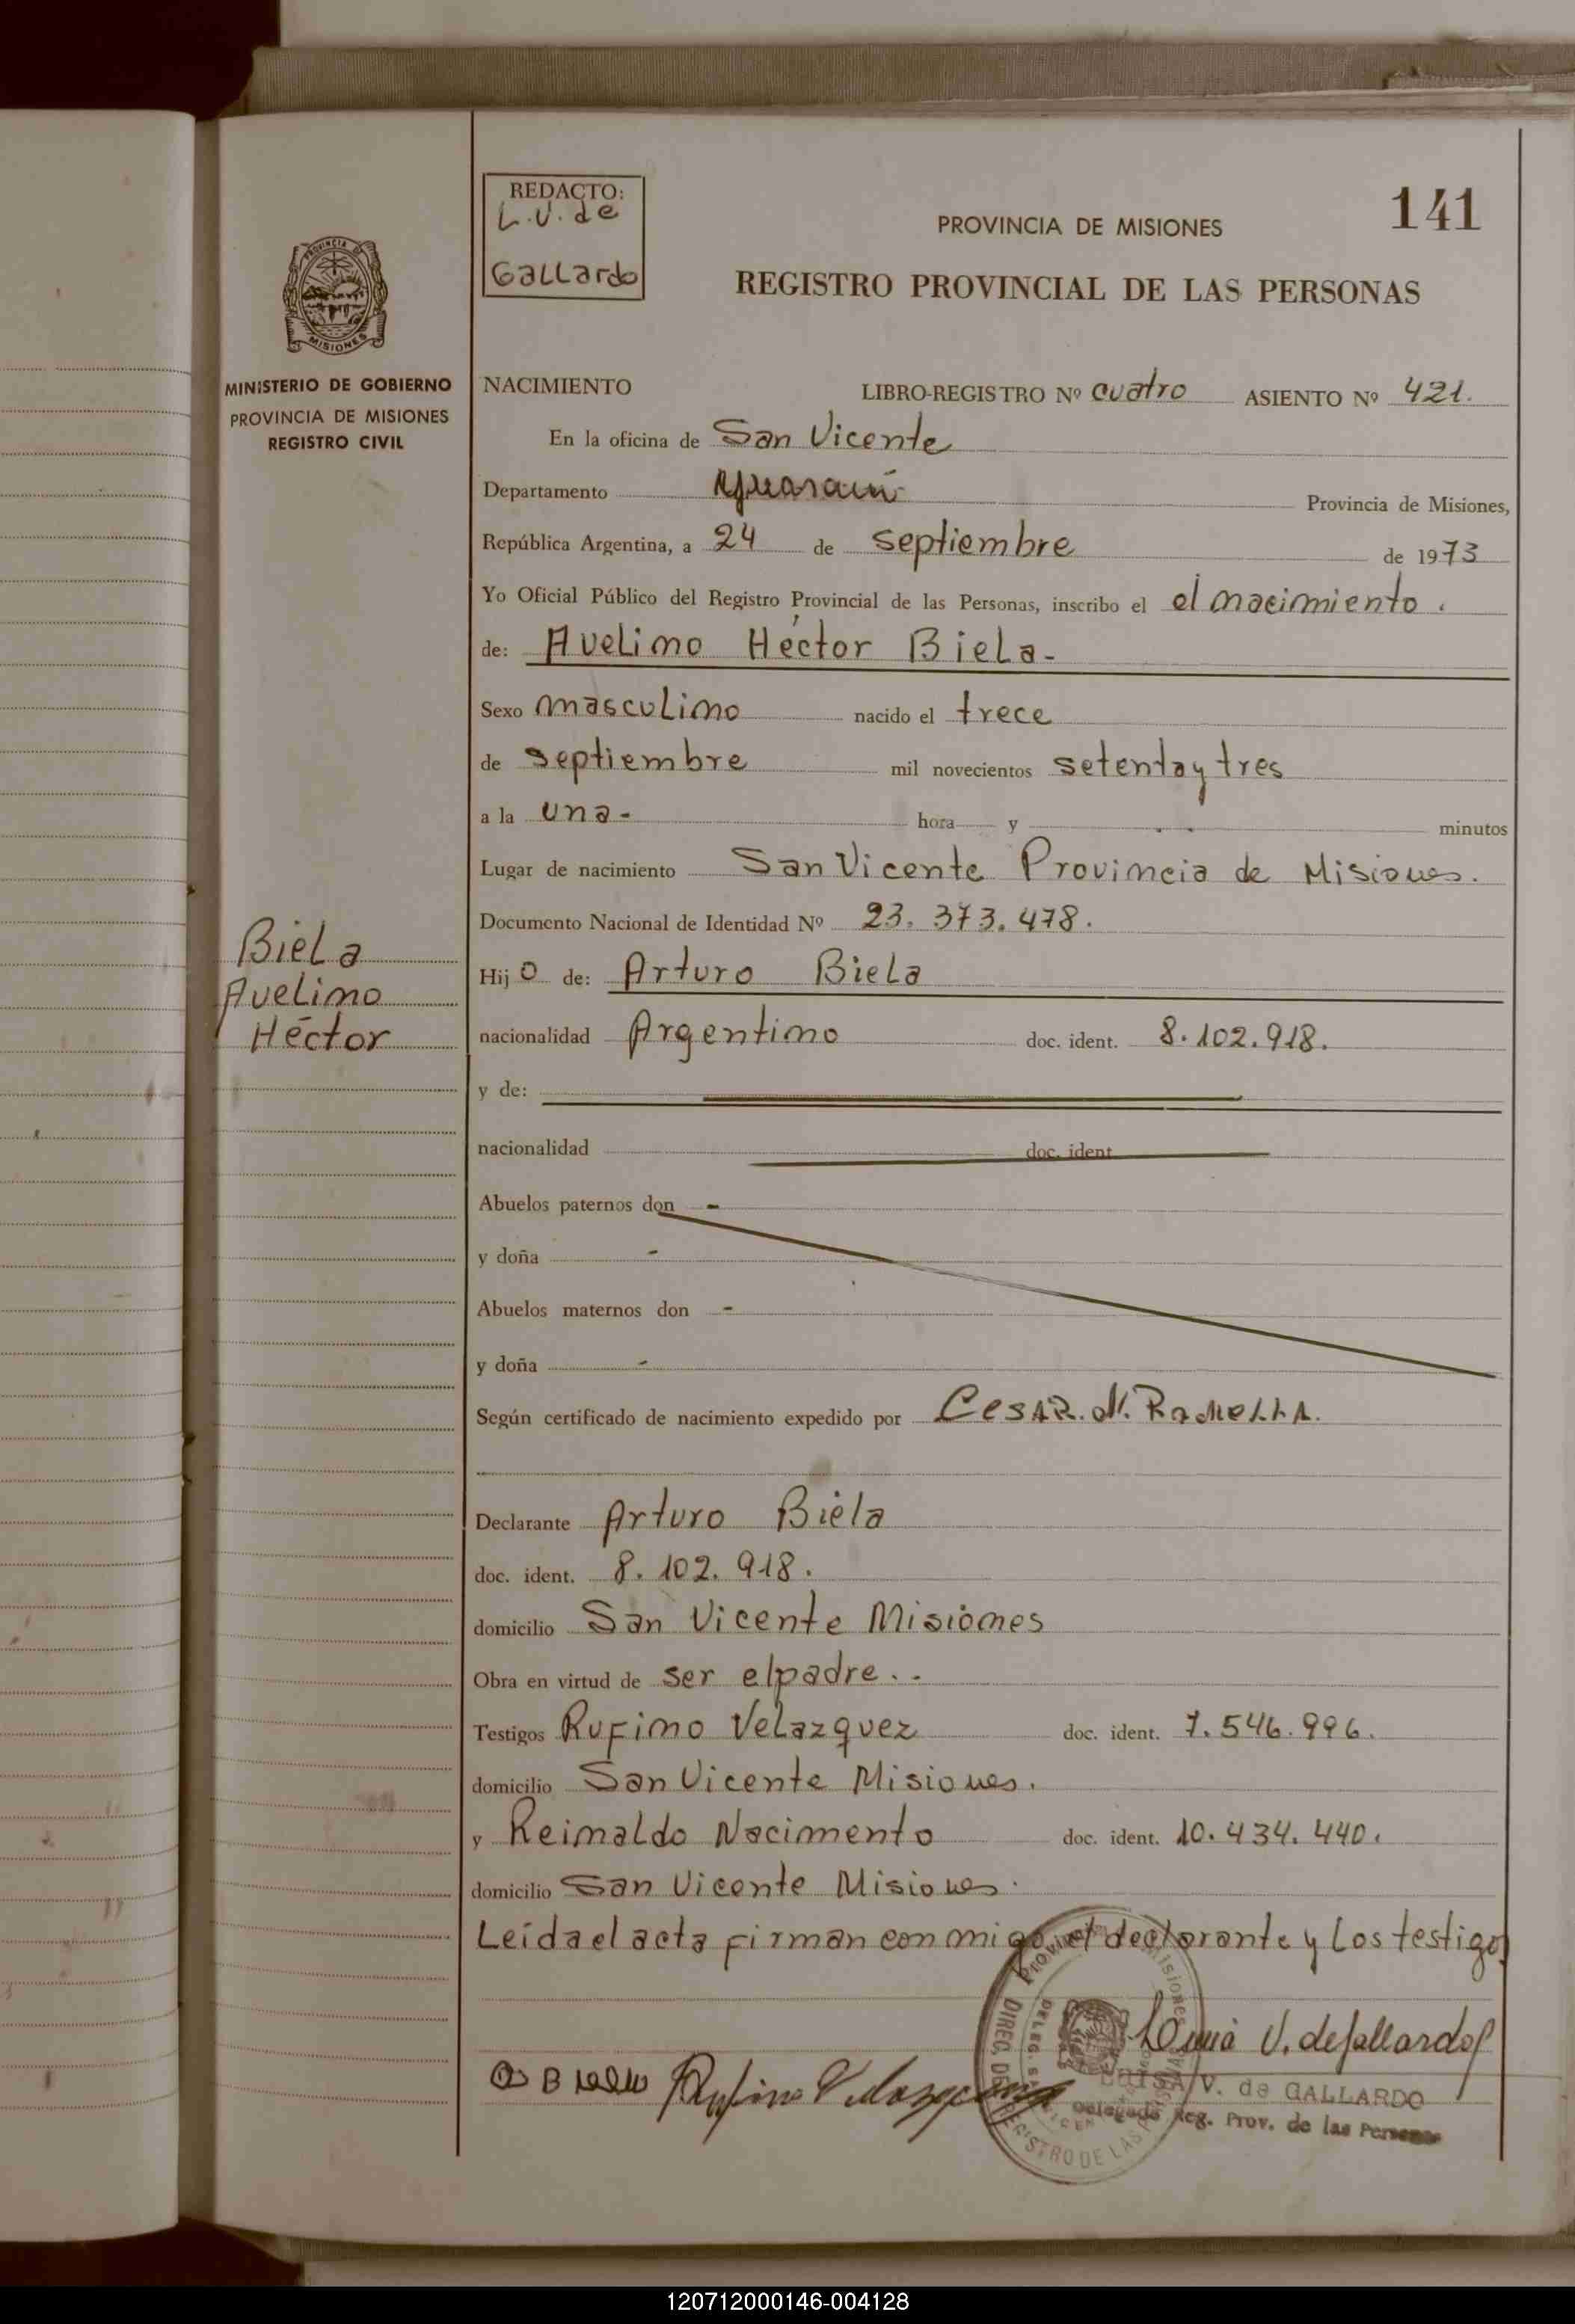 REDACTO:
L.V. de
Gallardo
PROVINCIA DE MISIONES
141
REGISTRO PROVINCIAL DE LAS PERSONAS
PROVINCIA DE
MISIONES
MINISTERIO DE GOBIERNO
PROVINCIA DE MISIONES
REGISTRO CIVIL
NACIMIENTO LIBRO-REGISTRO Nº cuatro ASIENTO Nº 421.
En la oficina de San Vicente
Departamento Guaraní Provincia de Misiones,
República Argentina, a 24 de septiembre de 1973
Yo Oficial Público del Registro Provincial de las Personas, inscribo el el nacimiento.
de: Avelino Héctor Biela-
Sexo masculino nacido el trece
de septiembre mil novecientos setenta y tres
a la una- hora y minutos
Lugar de nacimiento San Vicente Provincia de Misiones.
Documento Nacional de Identidad Nº 23.373.478.
Biela
Avelino
Héctor
Hijo de: Arturo Biela
nacionalidad Argentino doc. ident. 8.102.918.
y de:
nacionalidad doc. ident
Abuelos paternos don -
y doña -
Abuelos maternos don -
y doña -
Según certificado de nacimiento expedido por Cesar. N. Ramella.
Declarante Arturo Biela
doc. ident. 8.102.918.
domicilio San Vicente Misiones
Obra en virtud de ser el padre..
Testigos Rufino Velazquez doc. ident. 7.546.996.
domicilio San Vicente Misiones.
y Reinaldo Nacimento doc. ident. 10.434.440.
domicilio San Vicente Misiones.
Leída el acta firman con migo el declarante y los testigos
V. de Gallardo
Rufino Velazquez
LUISA V. de GALLARDO
Delegada Reg. Prov. de las Personas
120712000146-004128